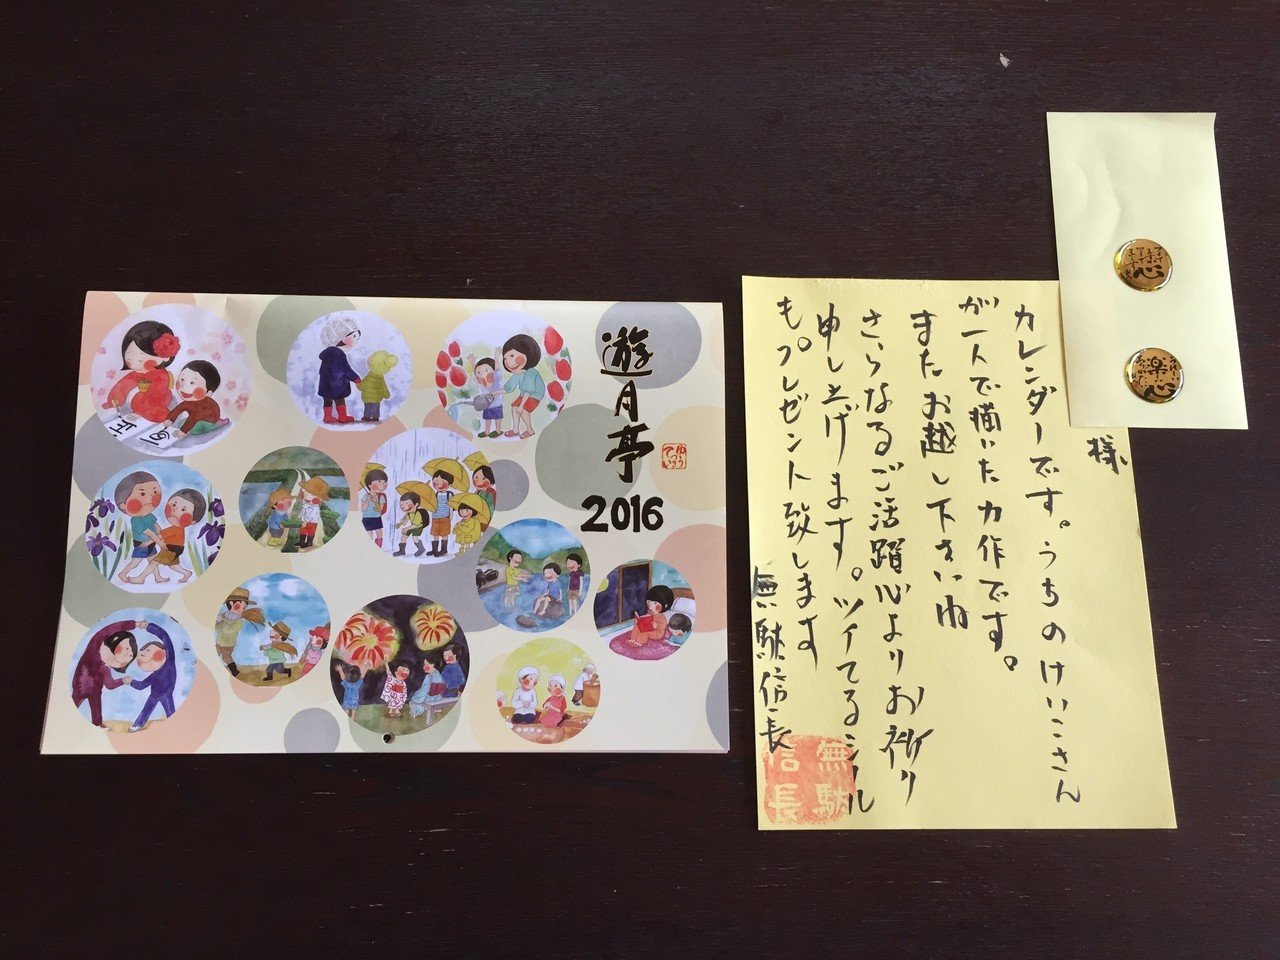 遊月亭
ゆう
づき
てい
2016
様
カレンダーです。うちのけいこさん
が一人で描いた力作です。
またお越し下さいね
さらなるご活躍心よりお祈り
申し上げます。ツイてるシール
も。プレゼント致します
無駄信長
無駄
信長
心
楽
心